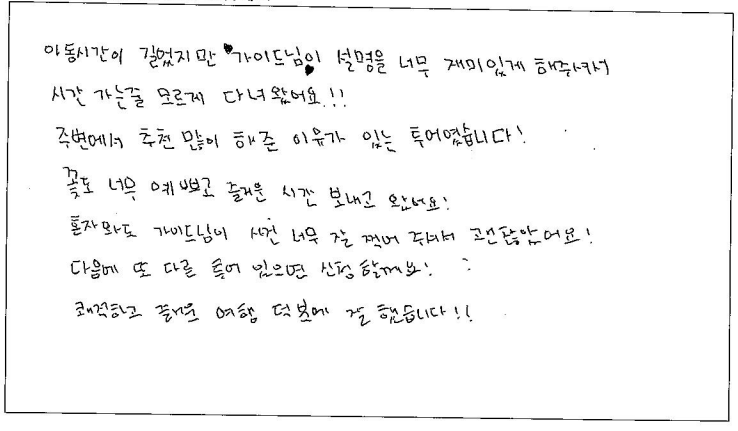 이동시간이 길었지만 가이드님이 설명을 너무 재미있게 해주셔서
시간 가는줄 모르게 다녀왔어요!!
주변에서 추천 많이 해준 이유가 있는 투어였습니다!
꽃도 너무 예쁘고 즐거운 시간 보내고 왔어요!
혼자와도 가이드님이 사진 너무 잘 찍어 주셔서 괜찮았어요!
다음에 또 다른 투어 있으면 신청할께요!
쾌적하고 즐거운 여행 덕분에 잘 했습니다!!